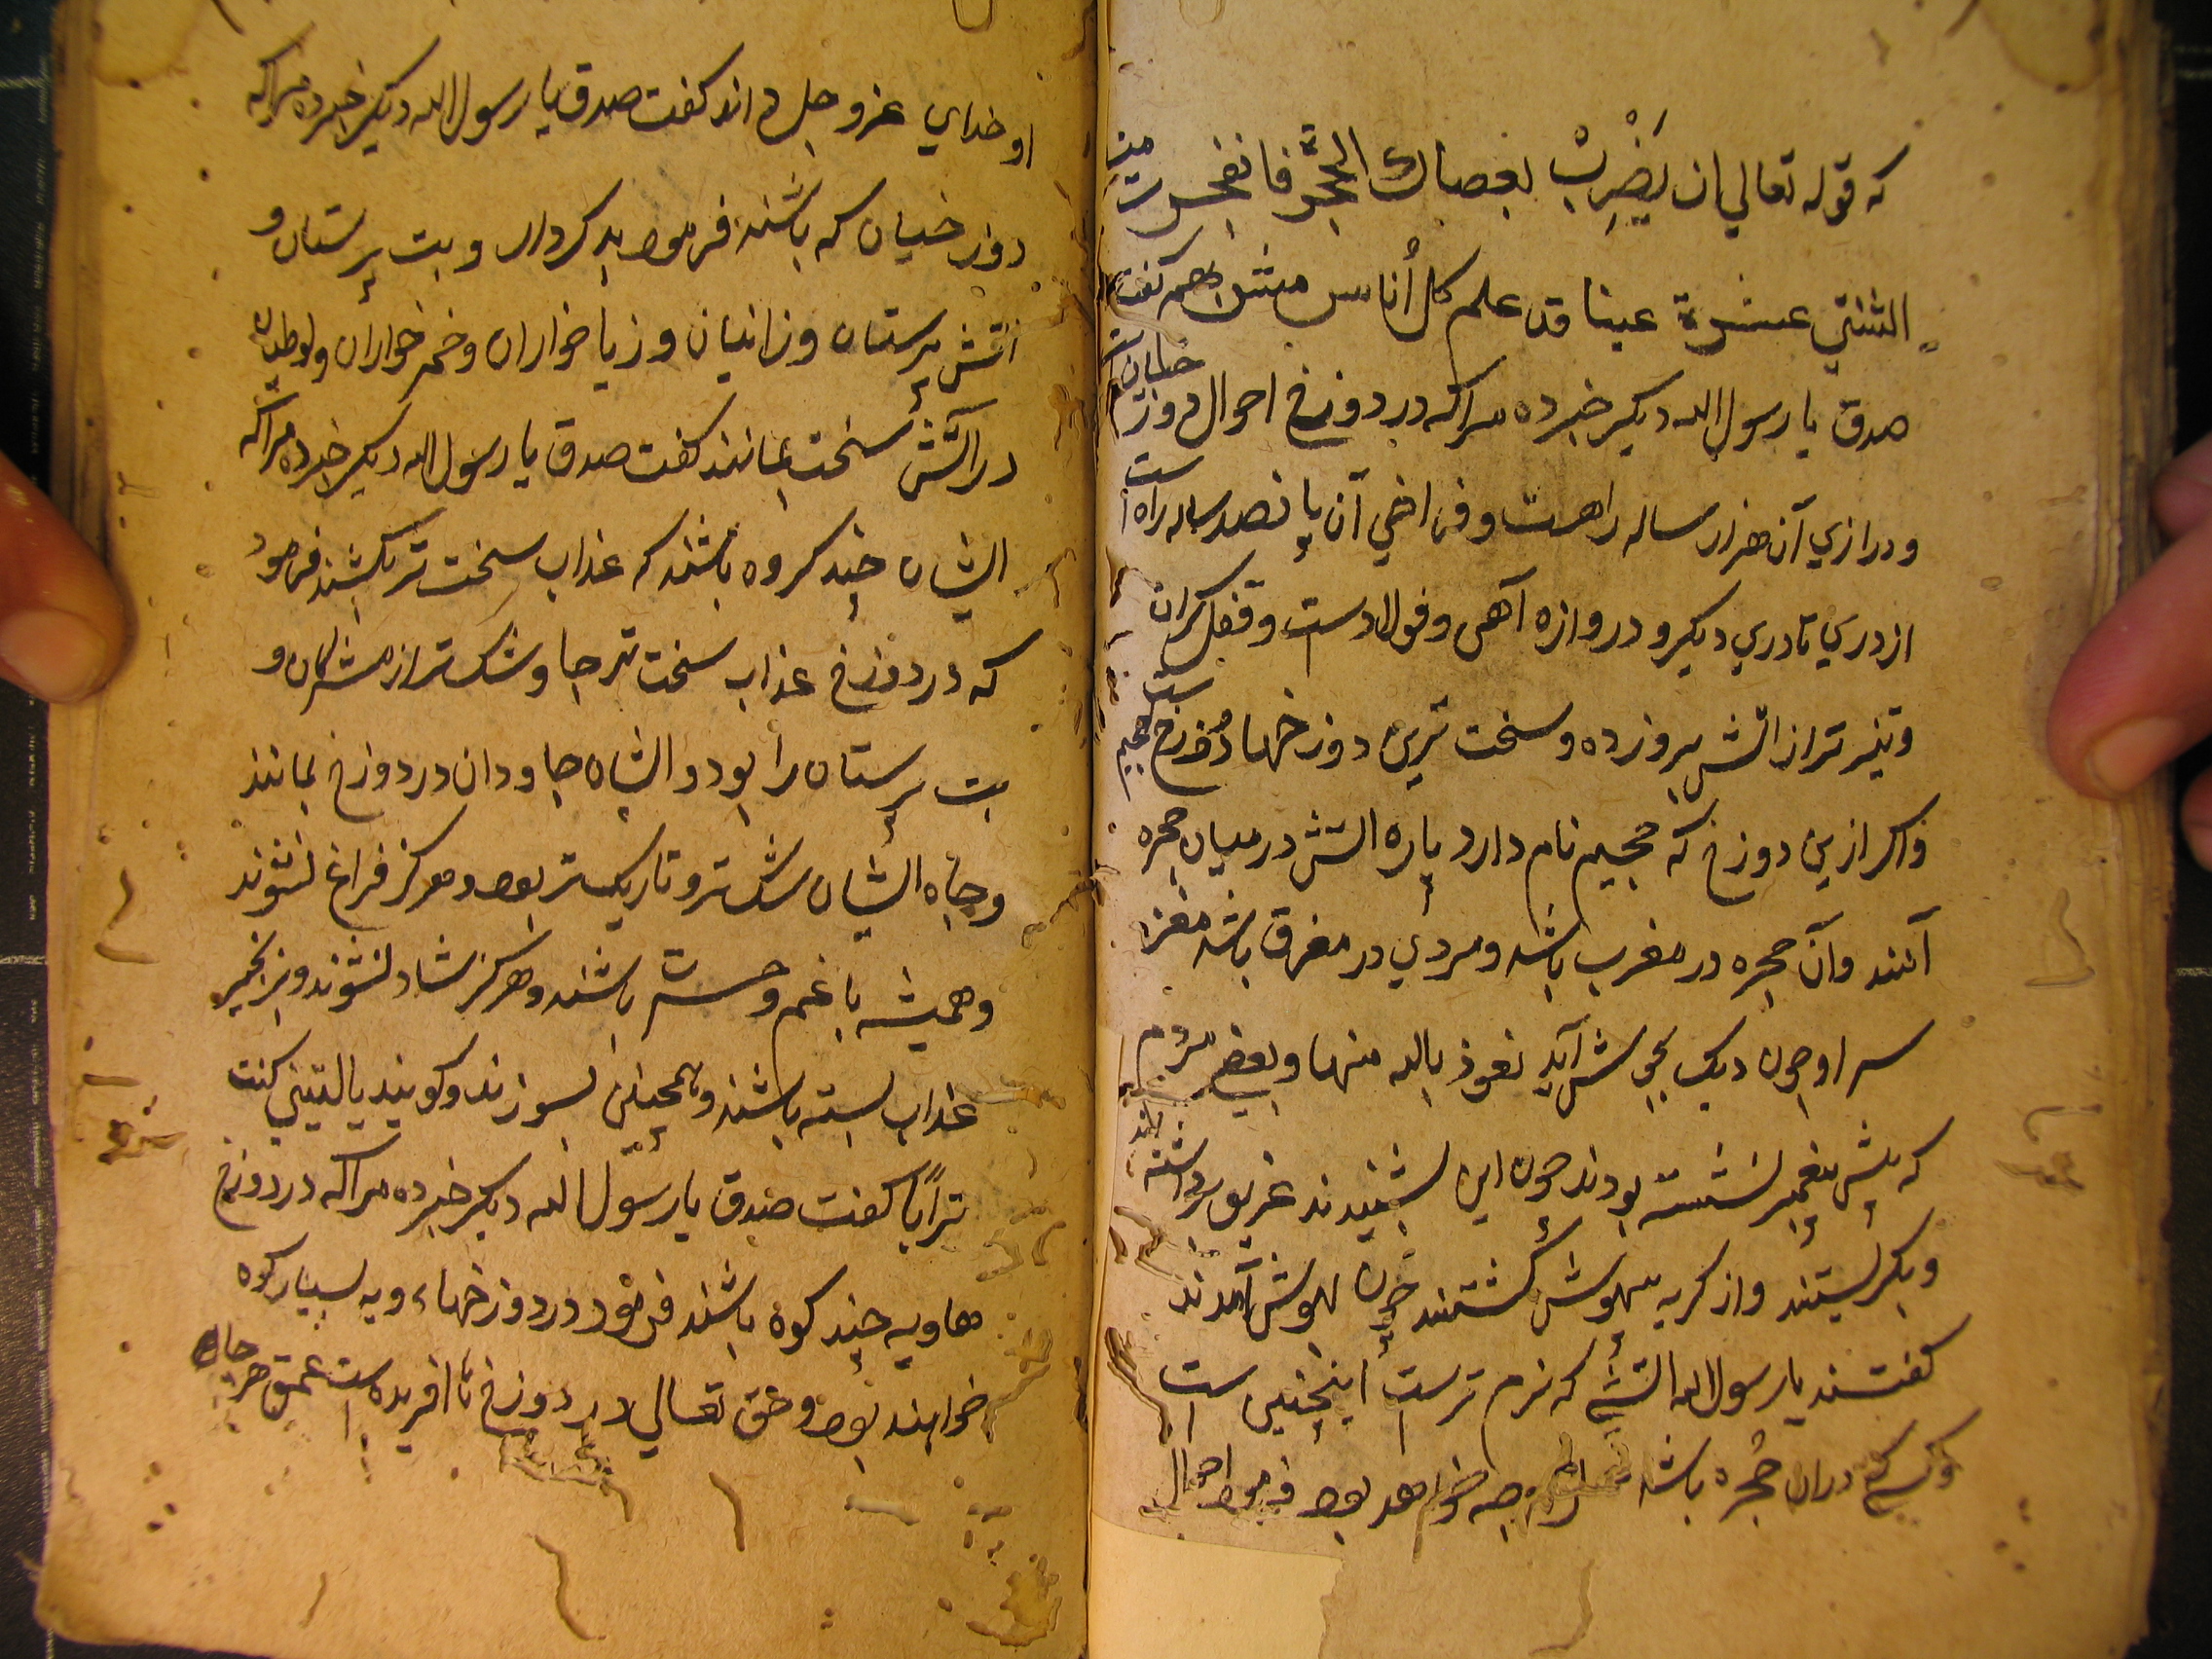 که قوله تعالي ان يَضْرِبْ بعصاك الحجر فانفجرت منه
اثنتي عشرة عينا قد علم كل أناس مشربهم گفت
صدق یا رسول الله دیکر خبر ده مرا که در دوزخ احوال دوزخیان
ودرازي آن هزار ساله راهست و فراخي آن پانصد ساله راه است
از دري تا دري دیکر و دروازه آهن و فولادست و قفل کران
وتیز تر از اتش بیروزده و سخت ترین دوزخها دوزخ جحیم ست
واکر ازین دوزخ که جحیم نام دارد پاره اتش در میان حجره
آنند وآن حجره در مغرب باشد ومردي در مشرق باشد مغز
سر او چون دیک بجوش آید نعوذ بالله منها و بعضي مردم
که پیش پیغمبر نشسته بودند چون این بشنیدند غریو برداشتند
وبکریستند واز کریه بیهوش گشتند چون بهوش آمدند
کفتند یا رسول الله اتشی که نرم ترست اینچنین است
وکسی که دران حجره باشد چه خواهد بود فرمود احوال
او خداي عزوجل داند کفت صدق یا رسول الله دیکر خبر ده مرا که
دوزخیان که باشند فرمود بد کردار و بت پرستان و
اتش پرستان وزانیان و زیاخواران وخمر خواران ولوطیان
در اتش سخت بمانند کفت صدق یا رسول الله دیکر خبر ده مرا که
ایشان چند کروه باشند که عذاب سخت تر بکشند فرمود
که در دوزخ عذاب سخت تر جا و تنک تر از مشرکان و
بت پرستان را بود و ایشان جاودان در دوزخ بمانند
وجاه ایشان تنک تر و تاریک تر بود وهرکز فراغ نشوند
وهمیشه با غم و حسرت باشند وهرکز شاد نشوند وبزنجیر
عذاب بسته باشند وهمچنین بسوزند وکویند یالیتني کنت
تراباً کفت صدق یا رسول الله دیکر خبر ده مرا که در دوزخ
هاویه چند کوه باشند فرمود در دوزخ هاویه بسیار کوه
خواهند بود و حق تعالي در دوزخ تا افریده ست عمق هر چاه